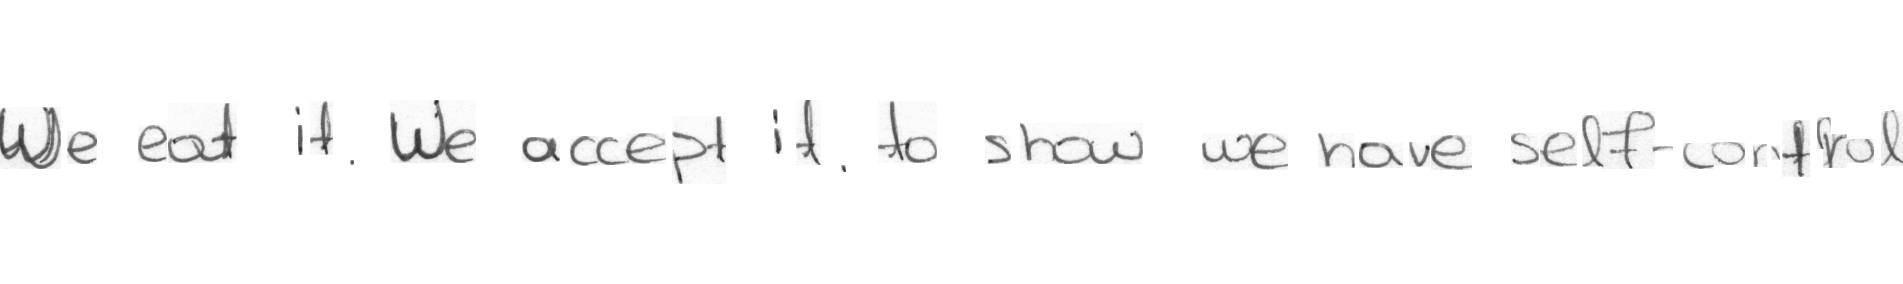 We eat it. We accept it. to show we have self-control